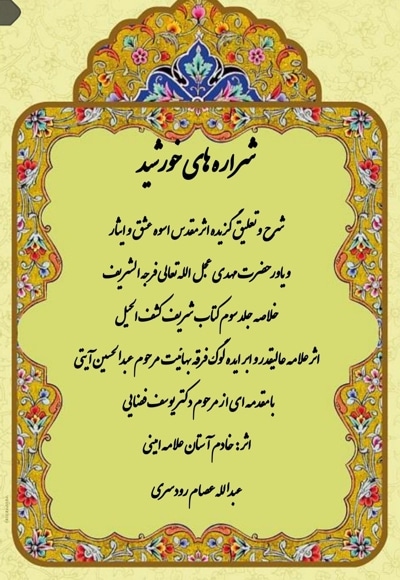 شراره های خورشید
شرح و تعلیق گزیده اثر مقدس اسوه عشق و ایثار
و یاور حضرت مهدی عجل الله تعالی فرجه الشریف
خلاصه جلد سوم کتاب شریف کشف الحیل
اثر علامه عالیقدر و ابر ایده لوگ فرقه بهائیت مرحوم عبدالحسین آیتی
با مقدمه ای از مرحوم دکتر یوسف فضایی
اثر: خادم آستان علامه امینی
عبدالله عصام رودسری